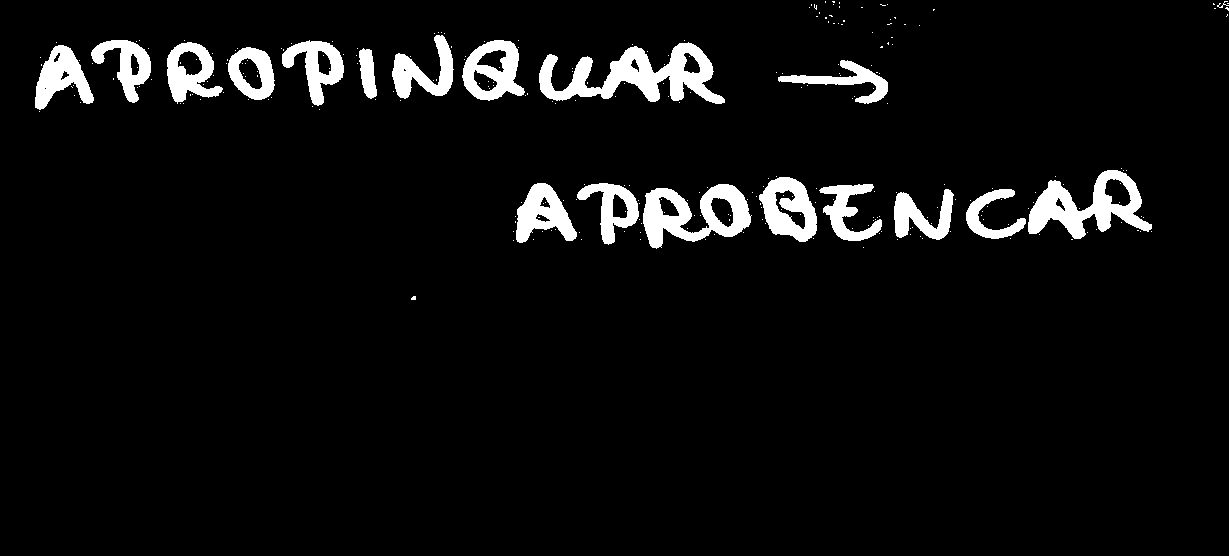 APROPINQUAR →
APROBENCAR